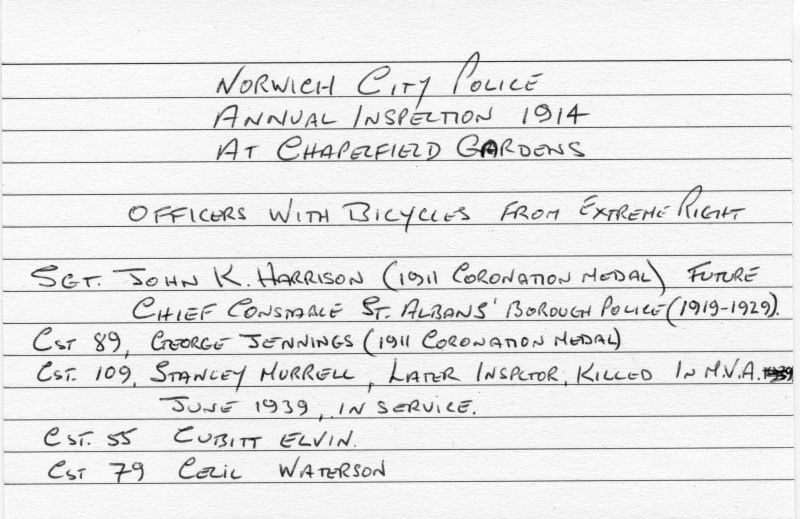 NORWICH CITY POLICE
ANNUAL INSPECTION 1914
AT CHAPELFIELD GARDENS
OFFICERS WITH BICYCLES FROM EXTREME RIGHT
SGT. JOHN K. HARRISON (1911 CORONATION MEDAL) FUTURE
CHIEF CONSTABLE ST. ALBANS' BOROUGH POLICE (1919-1929).
CST 89, GEORGE JENNINGS (1911 CORONATION MEDAL)
CST. 109, STANLEY MURRELL, LATER INSPCTOR, KILLED IN M.V.A.
JUNE 1939, IN SERVICE.
CST. 55 CUBITT ELVIN.
CST 79 CECIL WATERSON